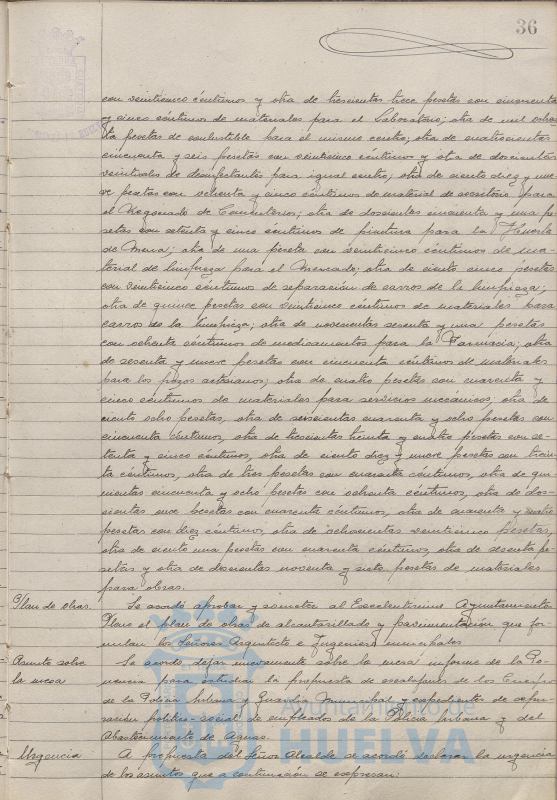 36
con veinticinco céntimos y otra de trescientas trece pesetas con cincuenta
y cinco céntimos de materiales para el Laboratorio; otra de mil ochen-
ta pesetas de combustible para el mismo centro; otra de cuatrocientas
cincuenta y seis pesetas con veinticinco céntimos y otra de doscientas
veintiseis de desinfectantes para igual centro; otra de ciento diez y nue-
ve pesetas con ochenta y cinco céntimos de material de escritorio para
el Negociado de Cementerios; otra de doscientas cincuenta y una pe-
setas con setenta y cinco céntimos de pintura para la Huerta
de Mena; otra de una peseta con veinticinco céntimos de ma-
terial de limpieza para el Mercado; otra de ciento cinco pesetas
con veinticinco céntimos de reparación de carros de la limpieza;
otra de quince pesetas con veinticinco céntimos de materiales para
carros de la limpieza; otra de novecientas sesenta y una pesetas
con ochenta céntimos de medicamentos para la Farmacia; otra
de sesenta y nueve pesetas con cincuenta céntimos de materiales
para los pozos artesianos; otra de cuatro pesetas con cuarenta y
cinco céntimos de materiales para servicios mecánicos; otra de
ciento ocho pesetas, otra de seiscientas cuarenta y ocho pesetas con
cincuenta céntimos, otra de trescientas treinta y cuatro pesetas con se-
tenta y cinco céntimos, otra de ciento diez y nueve pesetas con trein-
ta céntimos, otra de tres pesetas con cuarenta céntimos, otra de qui-
nientas cincuenta y ocho pesetas con ochenta céntimos, otra de dos-
cientas once pesetas con cuarenta céntimos, otra de cuarenta y cuatro
pesetas con diez céntimos, otra de ochocientas veinticinco pesetas,
otra de ciento una pesetas con cuarenta céntimos, otra de sesenta pe-
setas y otra de doscientas noventa y siete pesetas de materiales
para obras.
Plan de obras. Se acordó aprobar y someter al Excelentísimo Ayuntamiento
Pleno el plan de obras de alcantarillado y pavimentación que for-
mulan los Señores Arquitecto e Ingeniero municipales.
Asunto sobre la mesa Se acordó dejar nuevamente sobre la mesa informe de la Po-
nencia para estudiar la propuesta de escalafones de los Cuerpos
de la Policía Urbana y Guardia Municipal y expedientes de depu-
ración político-social de empleados de la Policía Urbana y del
Abastecimiento de Aguas.
Urgencia A propuesta del Señor Alcalde se acordó declarar la urgencia
de los asuntos que a continuación se expresan:
Ayuntamiento de
HUELVA